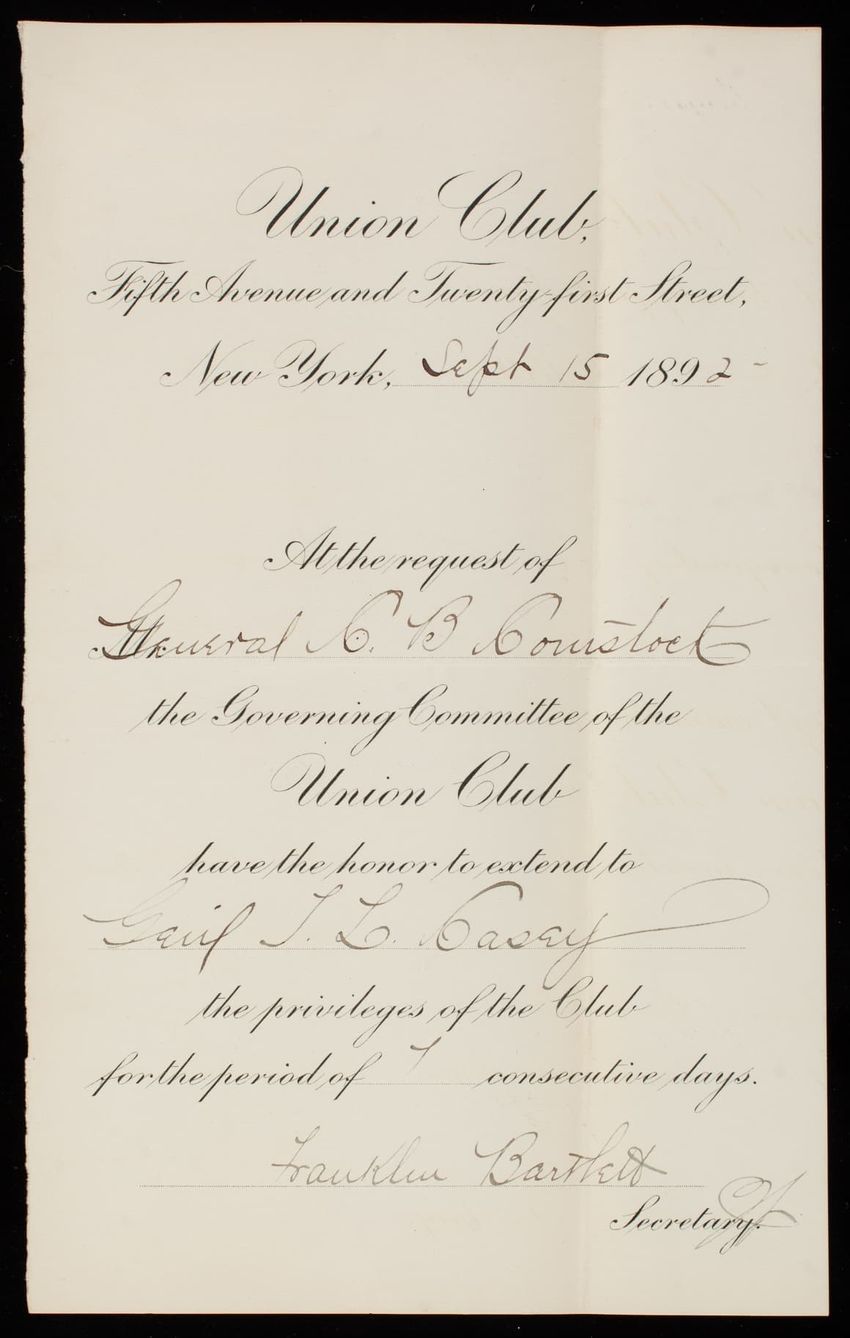 Union Club,
Fifth Avenue and Twenty-first Street,
New York, Sept 15 1892
At the request of
General C. B Comstock
the Governing Committee of the
Union Club
have the honor to extend to
Genl T. L. Casey
the privileges of the Club
for the period of 7 consecutive days.
Franklin Bartlett
Secretary.